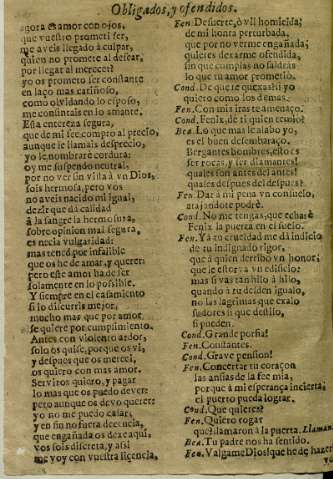 Obligados, y ofendidos.
agora es amor con ojos,
que vuestro prometi ser,
me aveis llegado à culpar,
quien no promete al desear,
por llegar al merecer?
yo os prometo ser constante
en laço mas cariñoso,
como olvidando lo esposo,
me consintais en lo amante.
Esta entereza segura,
que de mi fee compro al precio,
aunque le llamais desprecio,
yo le nombrarè cordura:
oy me suspendo neutral,
por no ver sin vista à vn Dios,
sois hermosa, pero vos
no aveis nacido mi igual;
dezir que dà calidad
à la sangre la hermosura,
sobre opinion mal segura,
es necia vulgaridad:
mas tened por infalible
que os he de amar, y querer;
pero este amor ha de ser
solamente en lo possible.
Y siempre en el casamiento
si lo discurris mejor,
mucho mas que por amor
se quiere por cumplimiento.
Antes con violento ardor,
solo os quise, porque os vi,
y despues que os mereci,
os quiero con mas amor.
Serviros quiero, y pagar
lo mas que os puedo dever;
pero aunque os devo querer,
yo no me puedo casar;
y en fin no fuera decencia,
que engañada os dexe aqui,
vos sois discreta, y assi
me voy con vuestra licencia,
Fen. Desuerte, ò vil homicida;
de mi honra perturbada,
que por no verme engañada;
quieres dexarme ofendida,
sin que cumplas no saldràs
lo que tu amor prometio.
Cond. De que te quexas si yo
quiero como los demàs.
Fen. Con mis iras te amenaço.
Cond. Fenix, de ti quien temio?
Bea. Lo que mas le alabo yo,
es el buen desembaraço.
Bergantes hombres, esto es
ser rocas, y ser diamantes!
quales son antes del antes!
quales despues del despues?
Fen. Dar à mi pena vn consuelo,
atajandote podrè.
Cond. No me tengas, que echarè
Fenix la puerta en el suelo.
Fen. Ya tu crueldad me dà indicio
de tu indigusto rigor,
que à quien derribo vn honor;
que le estorva vn edificio:
mas si vas tan hijo à hilo,
quando à tu deiden igualo,
no las lagrimas que exalo
sudores si que destilo,
si pueden.
Cond. Grande porfia!
Fen. Constantes.
Cond. Grave pension!
Fen. Concertar tu coraçon
las ansias de la fee mia,
por que à mi esperança incierta;
el puerto pueda lograr.
Cond. Que quieres?
Fen. Quiero rogar
que llamaron à la puerta. Llaman.
Bea. Tu padre nos ha sentido.
Fen. Valgame Dios! que he de hazer?